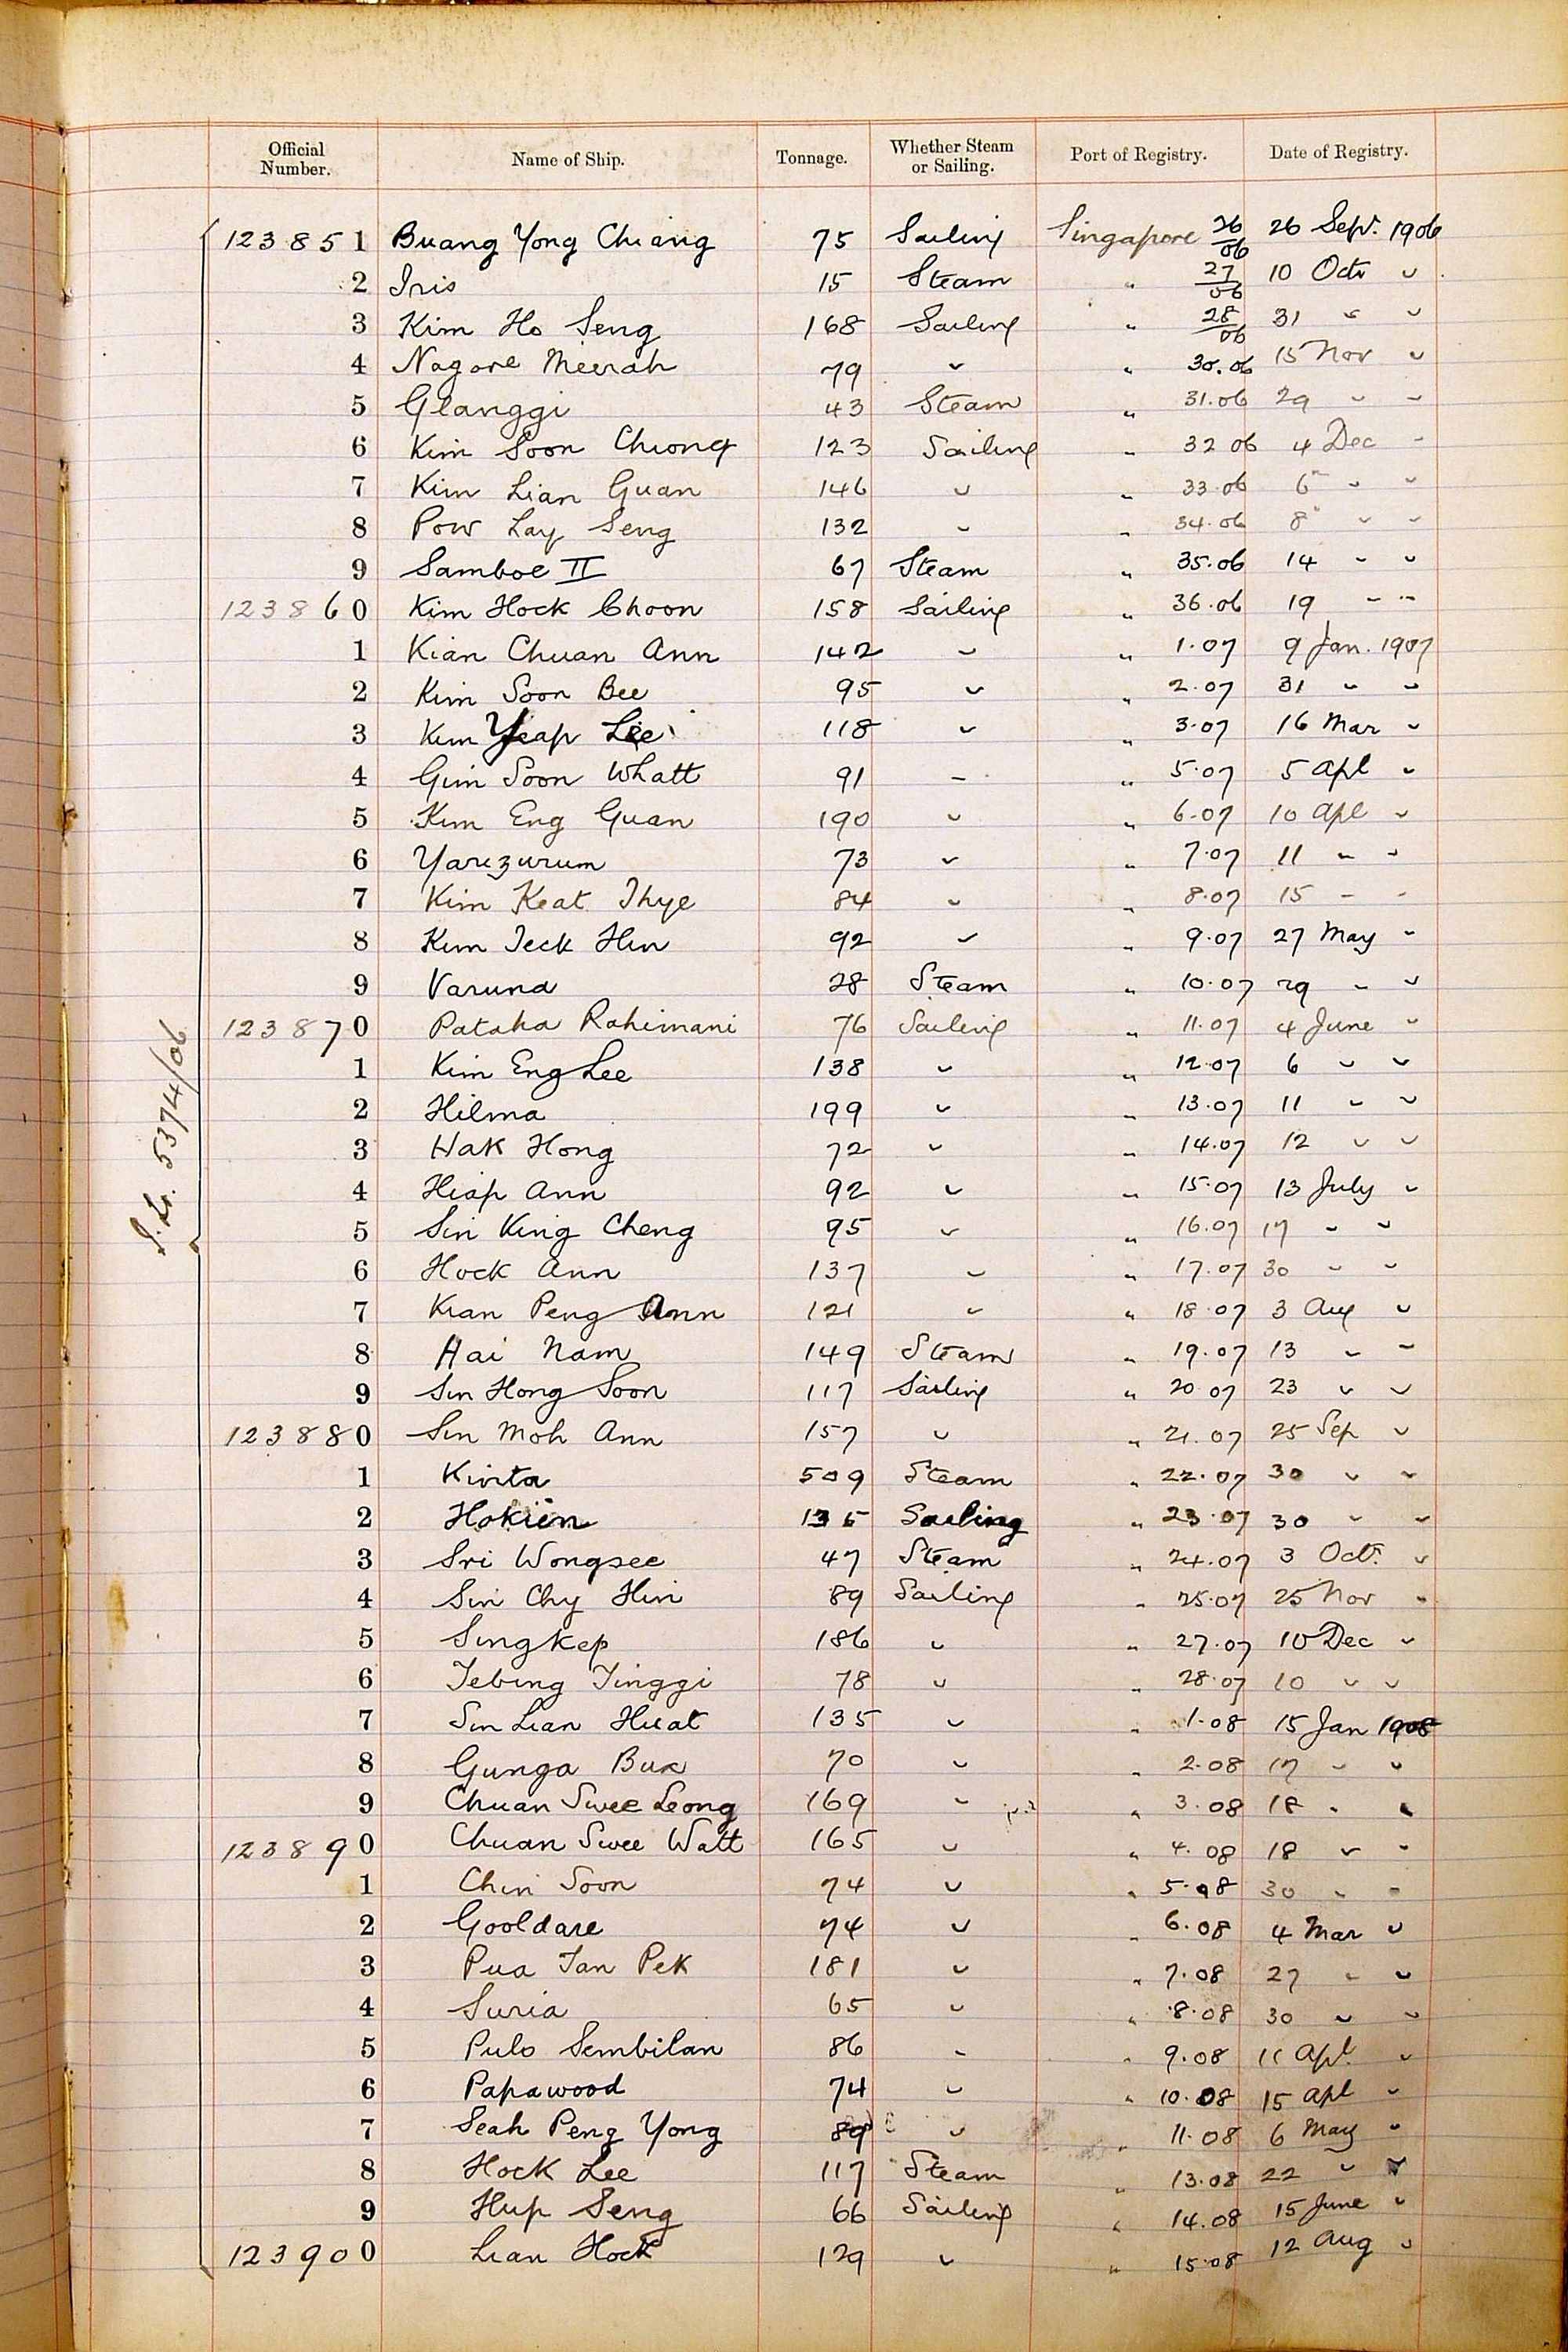 Official Number. Name of Ship. Tonnage. Whether Steam or Sailing. Port of Registry. Date of Registry.
123851 Buang Yong Chiang 75 Sailing Singapore 26/06 26 Sept. 1906
2 Iris 15 Steam " 27/06 10 Octr "
3 Kim Ho Seng 168 Sailing " 28/06 31 " "
4 Nagore Meerah 79 " " 30.06 15 Nov "
5 Glanggi 43 Steam " 31.06 29 " "
6 Kim Soon Chiong 123 Sailing " 32 06 4 Dec "
7 Kim Lian Guan 146 " " 33.06 6 " "
8 Pow Lay Seng 132 " " 34.06 8 " "
9 Samboe II 67 Steam " 35.06 14 " "
123860 Kim Hock Choon 158 Sailing " 36.06 19 " "
1 Kian Chuan Ann 142 " " 1.07 9 Jan. 1907
2 Kim Soon Bee 95 " " 2.07 31 " "
3 Kim Yeap Lee 118 " " 3.07 16 Mar "
4 Gim Soon Whatt 91 " " 5.07 5 Apl "
5 Kim Eng Guan 190 " " 6.07 10 Apl "
6 Yarizurum 73 " " 7.07 11 " "
7 Kim Keat Thye 84 " " 8.07 15 " "
8 Kim Teck Hin 92 " " 9.07 27 May "
9 Varuna 28 Steam " 10.07 29 " "
123870 Pataha Rahimani 76 Sailing " 11.07 4 June "
1 Kim Eng Lee 138 " " 12.07 6 " "
2 Hilma 199 " " 13.07 11 " "
3 Hak Hong 72 " " 14.07 12 " "
4 Hiap Ann 92 " " 15.07 13 July "
5 Sin King Cheng 95 " " 16.07 17 " "
6 Hock Ann 137 " " 17.07 30 " "
7 Kian Peng Ann 121 " " 18.07 3 Aug "
8 Hai Nam 149 Steam " 19.07 13 " "
9 Sin Hong Soon 117 Sailing " 20 07 23 " "
123880 Sin Moh Ann 157 " " 21.07 25 Sep "
1 Kinta 509 Steam " 22.07 30 " "
2 Hokien 135 Sailing " 23.07 30 " "
3 Sri Wongsee 47 Steam " 24.07 3 Oct. "
4 Sin Chy Hin 89 Sailing " 25.07 25 Nov "
5 Singkep 186 " " 27.07 10 Dec "
6 Tebing Tinggi 78 " " 28.07 10 " "
7 Sin Lian Huat 135 " " 1.08 15 Jan 1908
8 Gunga Bux 70 " " 2.08 17 " "
9 Chuan Swee Leong 169 " " 3.08 18 " "
123890 Chuan Swee Watt 165 " " 4.08 18 " "
1 Chin Soon 74 " " 5.08 30 " "
2 Gooldare 74 " " 6.08 4 Mar "
3 Pua Tan Pek 181 " " 7.08 27 " "
4 Suria 65 " " 8.08 30 " "
5 Pulo Sembilan 86 " " 9.08 11 Apl. "
6 Papawood 74 " " 10.08 15 Apl "
7 Seah Peng Yong 89 " " 11.08 6 May "
8 Hock Lee 117 Steam " 13.08 22 " "
9 Hup Seng 66 Sailing " 14.08 15 June "
123900 Lian Hock 129 " " 15.08 12 Aug "
5374/06